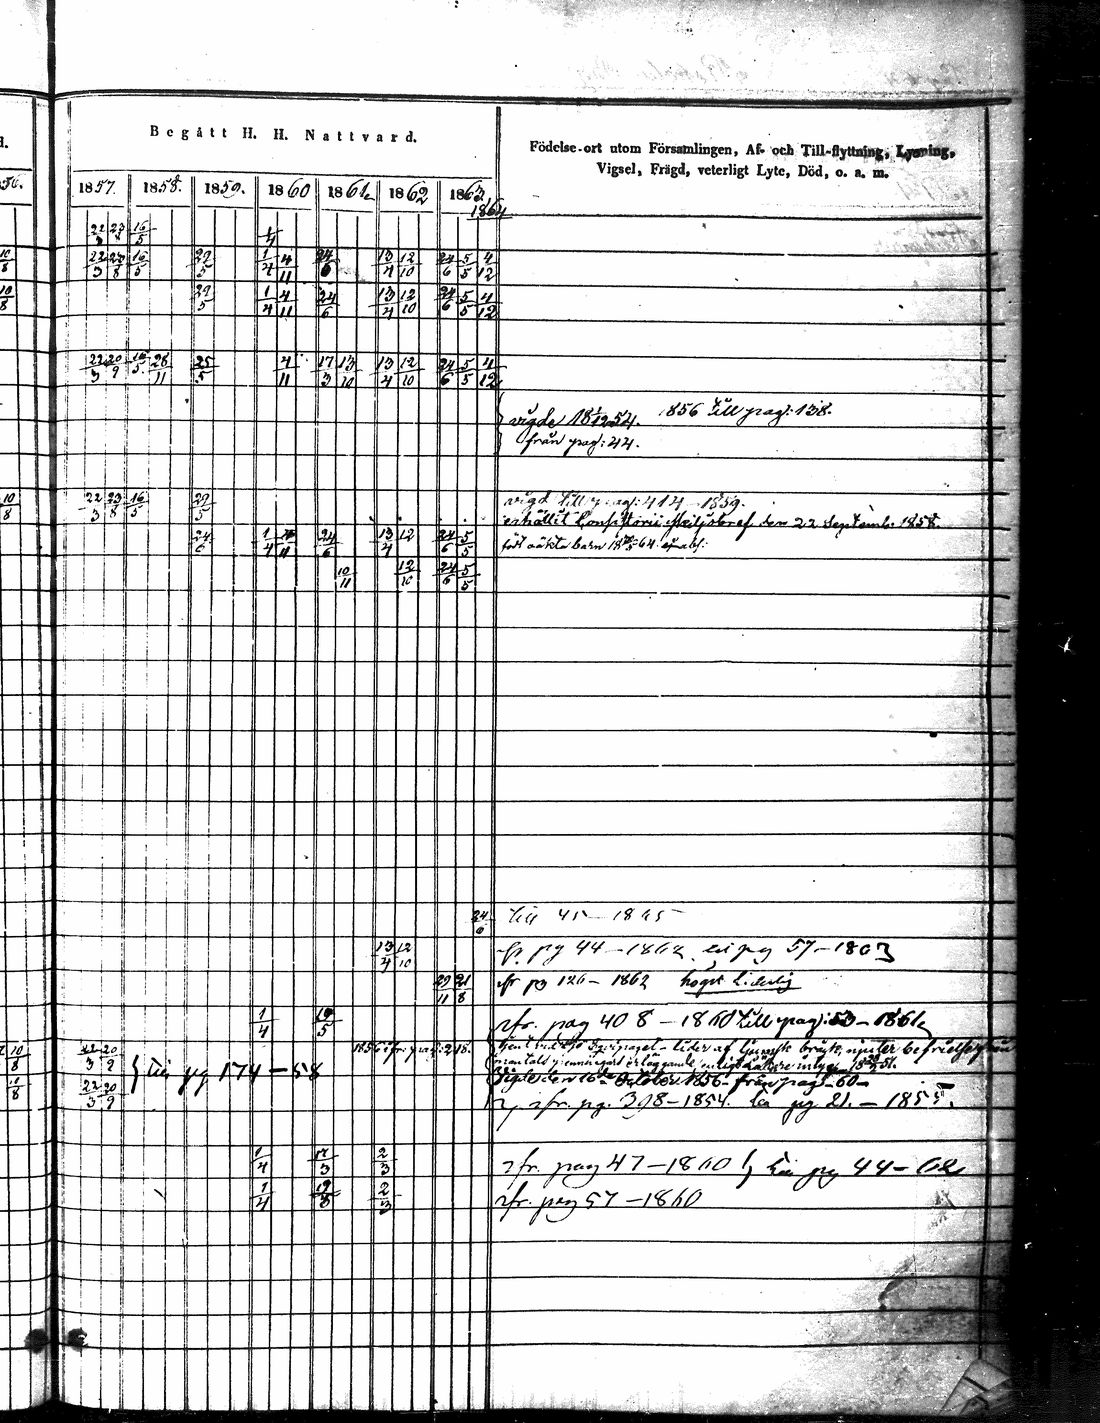 Begått H. H. Nattvard.
Födelse-ort utom Församlingen, Af- och Till-flyttning, Lysning,
Vigsel, Frägd, veterligt Lyte, Död, o. a. m.
1857. 1858. 1859. 1860 1861 1862 1863
1864
22/3 23/8 16/5 1/4
10/8 22/3 23/8 16/5 29/5 1/4 4/11 24/6 13/4 12/10 24/6 5/5 4/12
10/8 29/5 1/4 4/11 24/6 13/4 12/10 24/6 5/5 4/12
22/3 20/9 16/5 28/11 25/5 4/11 17/3 13/10 13/4 12/10 24/6 5/5 4/12
vigde 18 1/12 54. 1856 till pag: 138.
från pag: 44.
10/8 22/3 23/8 16/5 29/5 vigd till pag: 414 - 1859.
erhållit Consistorii skiljobref den 22 Septemb. 1858.
24/6 1/4 24/6 13/4 12 24/6 5/5 födt oäkta barn
10/11 12/10 24/6 5/5
24/6 till 45 - 1865
13/4 12/10 fr. pg 44 - 1862 till pg 57 - 1863
29/11 21/8 fr pg 126 - 1862 högst liderlig
1/4 19/5 ifr. pag 408 - 1860 till pag: 53 - 1861
1856 ifr. pag: 218.
10/9 22/3 20/9 lider af ljumsk bråk, njuter befrielse
} till pg 174 - 58
October 1856 - från pag - 60 -
10/8 22/3 20/9 ifr. pg. 398 - 1854. till pg 21. - 1855.
1/4 17/3 2/3 ifr. pag 47 - 1860 } till pg 44 - 62
1/4 19/8 2/3 ifr. pag 57 - 1860